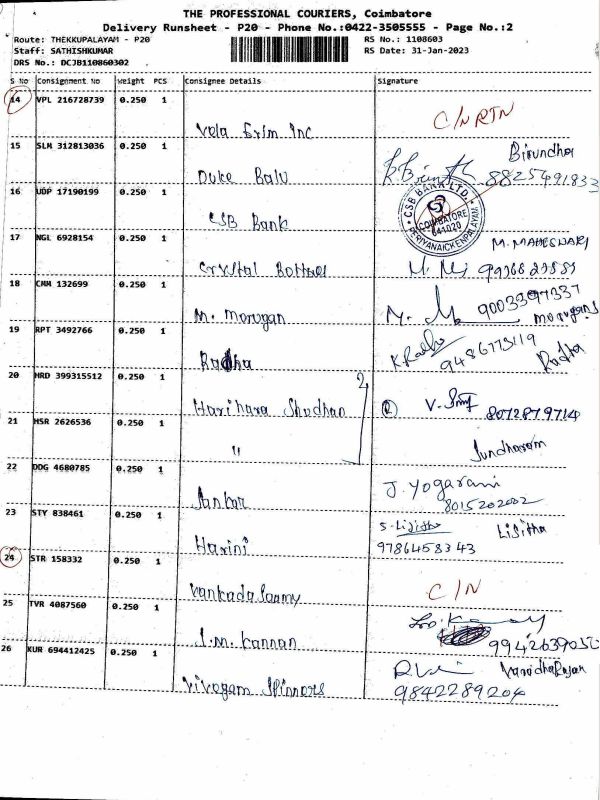 THE PROFESSIONAL COURIERS, Coimbatore
Delivery Runsheet - P20 - Phone No.:0422-3505555 - Page No.:2
Route: THEKKUPALAYAM - P20 RS No.: 1108603
Staff: SATHISHKUMAR RS Date: 31-Jan-2023
DRS No.: DCJB110860302
S No Consignment No Weight PCS Consignee Details Signature
14 VPL 216728739 0.250 1
Vela Exim Inc C/N RTN
15 SLM 312813036 0.250 1 Birundha
Duke Balu 8825491833
16 UDP 17190199 0.250 1 CSB BANK LTD. COIMBATORE 641020 PERIYANAICKENPALAYAM
CSB Bank
17 NGL 6928154 0.250 1 M. MAHESWARI
Crystal Bottles
18 CMM 132699 0.250 1 9003397337
M. Morugan morugans
19 RPT 3492766 0.250 1
Radha 9486773119 Radha
20 HRD 399315512 0.250 1 2
Harihara Shudhan 2 V. 8072879714
21 HSR 2626536 0.250 1
" Sundharam
22 DDG 4680785 0.250 1 J. Yogarani
Sankar 8015202002
23 STY 838461 0.250 1 S. Lijitha Lijitha
Harini 9786458343
24 STR 158332 0.250 1
Vankadasamy C/N
25 TVR 4087560 0.250 1
J.M. Kannan 9942639050
26 KUR 694412425 0.250 1 VaradhaRajan
Vivagam Spinners 9842289204